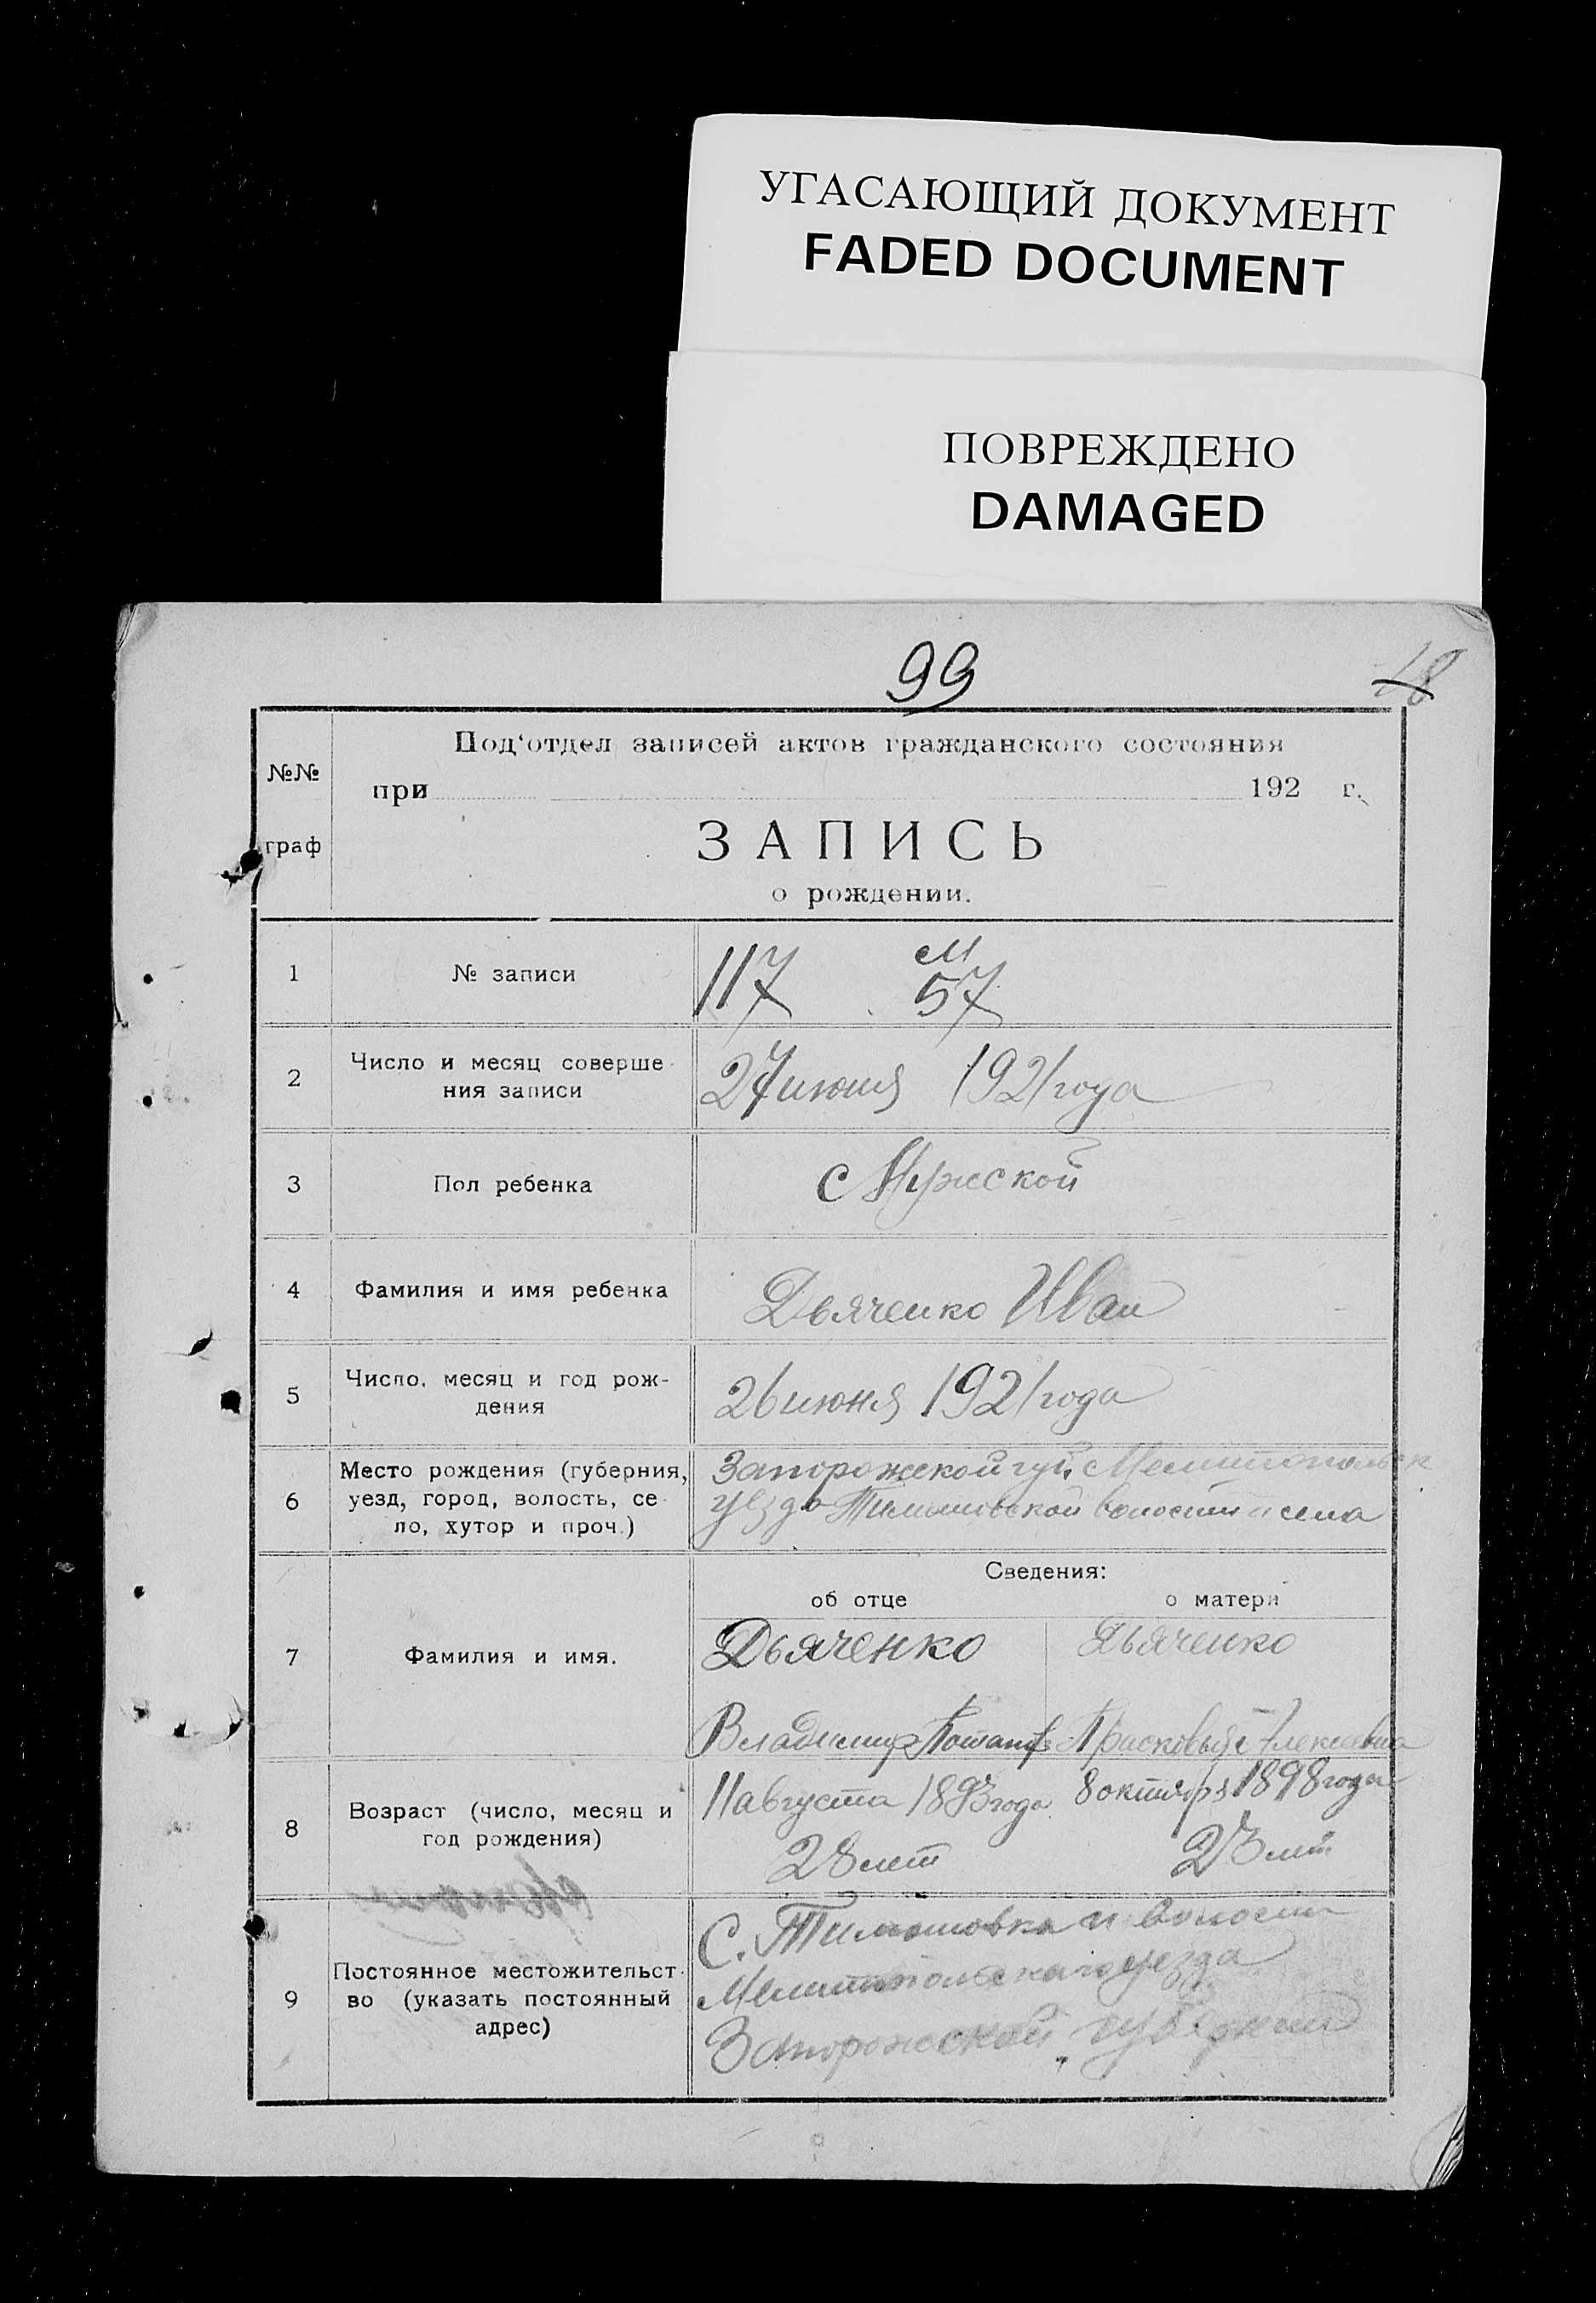 УГАСАЮЩИЙ ДОКУМЕНТ
FADED DOCUMENT
ПОВРЕЖДЕНО
DAMAGED
99
18
№№
граф
Под‘отдел записей актов гражданского состояния
при 192 г.
ЗАПИСЬ
о рождении.
1
№ записи
117 М
57
2
Число и месяц соверше-
ния записи
27 июня 1921 года
3
Пол ребенка
Мужской
4
Фамилия и имя ребенка
Дьяченко Иван
5
Число, месяц и год рож-
дения
26 июня 1921 года
6
Место рождения (губерния,
уезд, город, волость, се-
ло, хутор и проч.)
Запорожской губ. Мелитопольск
уезда Тимошовской волости и села
Сведения:
об отце
о матери
7
Фамилия и имя.
Дьяченко
Дьяченко
Владимир Потапов
Прасковья Алексевна
8
Возраст (число, месяц и
год рождения)
11 августа 1893 года
8 октября 1898 года
28 лет
23 лет
9
Постоянное местожительст-
во (указать постоянный
адрес)
С. Тимошовка и волости
Мелитопольского уезда
Запорожской губернии